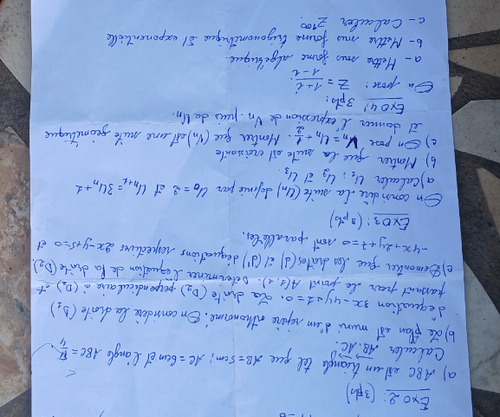 Exo 2: (3pts)
a) ABC est un triangle tel que AB = 5cm; AC = 6cm et l'angle ABC = π/4
Calculer AB.AC.
b) Le plan est muni d'un repère orthonormé. On considère la droite (D₁)
d'équation 3x-y+1=0. La droite (D₂) perpendiculaire à (D₁) et
passant par le point A(1; Déterminer l'équation de la droite (D₂)
c) Démontrer que les droites (d) et (d') d'équations respectives 2x-y+5=0 et
-4x+2y+7=0 sont parallèles.
Exo 3: (3pts)
On considère la suite (Un) définie par U₀=2 et Un+1=3Un+1
a) Calculer U₁; U₂ et U₃.
b) Montrer que la suite est croissante
c) On pose Vn=Un+1/2. Montrer que (Vn) est une suite géométrique
Et donner l'expression de Vn puis de Un.
Exo 4: 3pts:
On pose: Z = 1+i/1-i
a- Mettre sous forme algébrique.
b- Mettre sous forme trigonométrique et exponentielle
c- Calculer Z